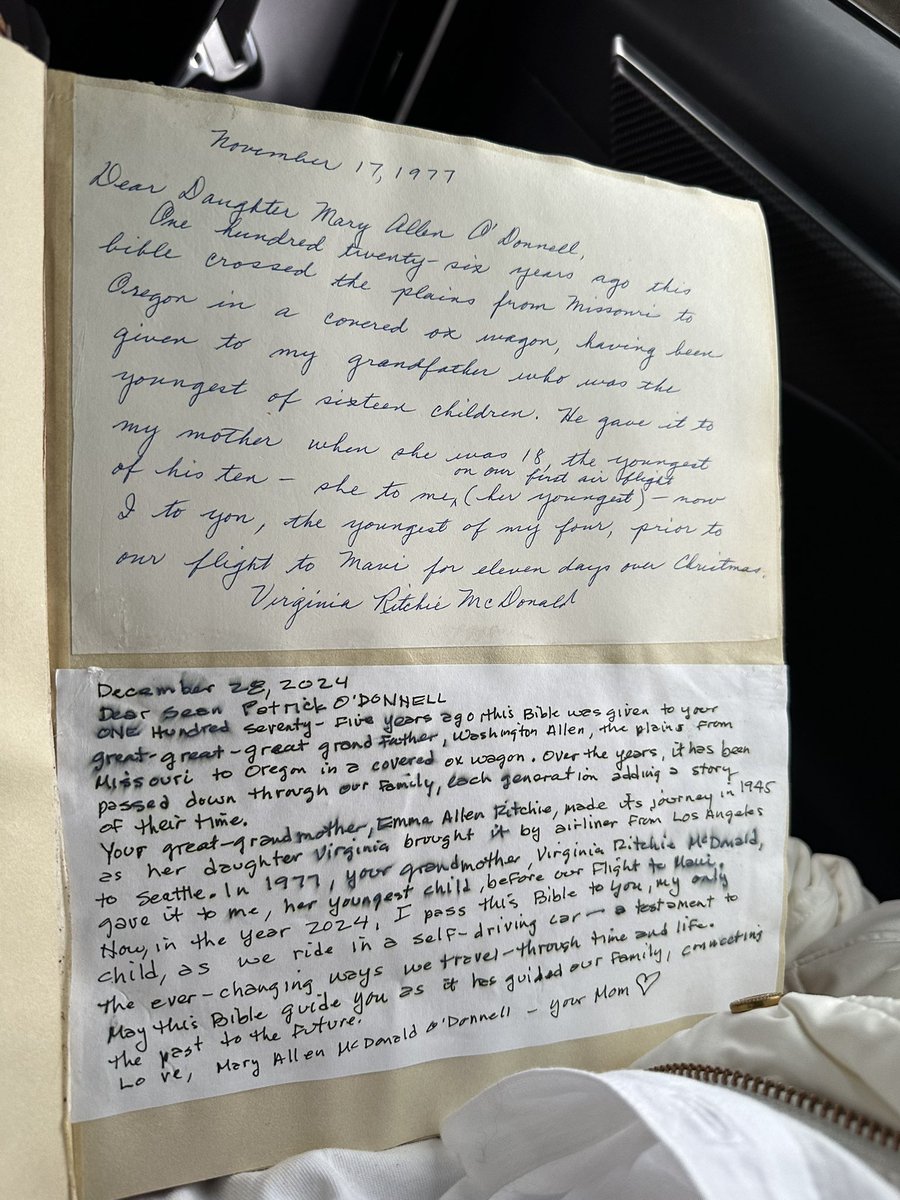 November 17, 1977
Dear Daughter Mary Allen O'Donnell,
One hundred twenty-six years ago this
bible crossed the plains from Missouri to
Oregon in a covered ox wagon, having been
given to my grandfather who was the
youngest of sixteen children. He gave it to
my mother when she was 18, the youngest
on our first air flight
of his ten - she to me, (her youngest) - now
I to you, the youngest of my four, prior to
our flight to Maui for eleven days over Christmas.
Virginia Ritchie McDonald
December 28, 2024
Dear Sean Patrick O'DONNELL
ONE Hundred Seventy-Five years ago this Bible was given to your
great-great-great grand Father, Washington Allen, the plains from
Missouri to Oregon in a covered ox wagon. Over the years, it has been
passed down through our family, each generation adding a story
of their time.
Your great-grandmother, Emma Allen Ritchie, made its journey in 1945
as her daughter Virginia brought it by airliner from Los Angeles
to Seattle. In 1977, your grandmother, Virginia Ritchie McDonald,
gave it to me, her youngest child, before our Flight to Maui.
Now, in the year 2024, I pass this Bible to you, my only
child, as we ride in a self-driving car - a testament to
the ever-changing ways we travel-through time and life.
May this Bible guide you as it has guided our family, connecting
the past to the future.
Love, Mary Allen McDonald O'Donnell - your Mom ♡